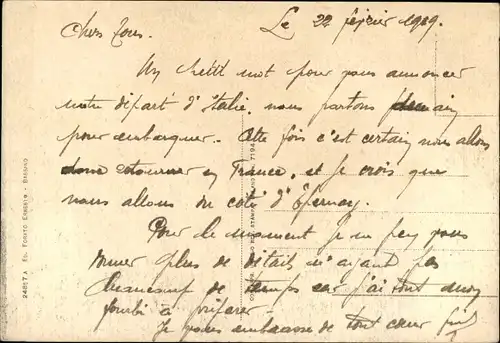 Le 22 février 1919.
Chers Tous.
Un petit mot pour vous annoncer
notre départ d'Italie. nous partons demain
pour embarquer. Cette fois c'est certain nous allons
donc retourner en France. et je crois que
nous allons du coté d'Épernay.
Pour le moment je ne peux vous
donner plus de détails n'ayant pas
beaucoup de temps car j'ai tout mon
fourbi à préparer.
Je vous embrasse de tout cœur